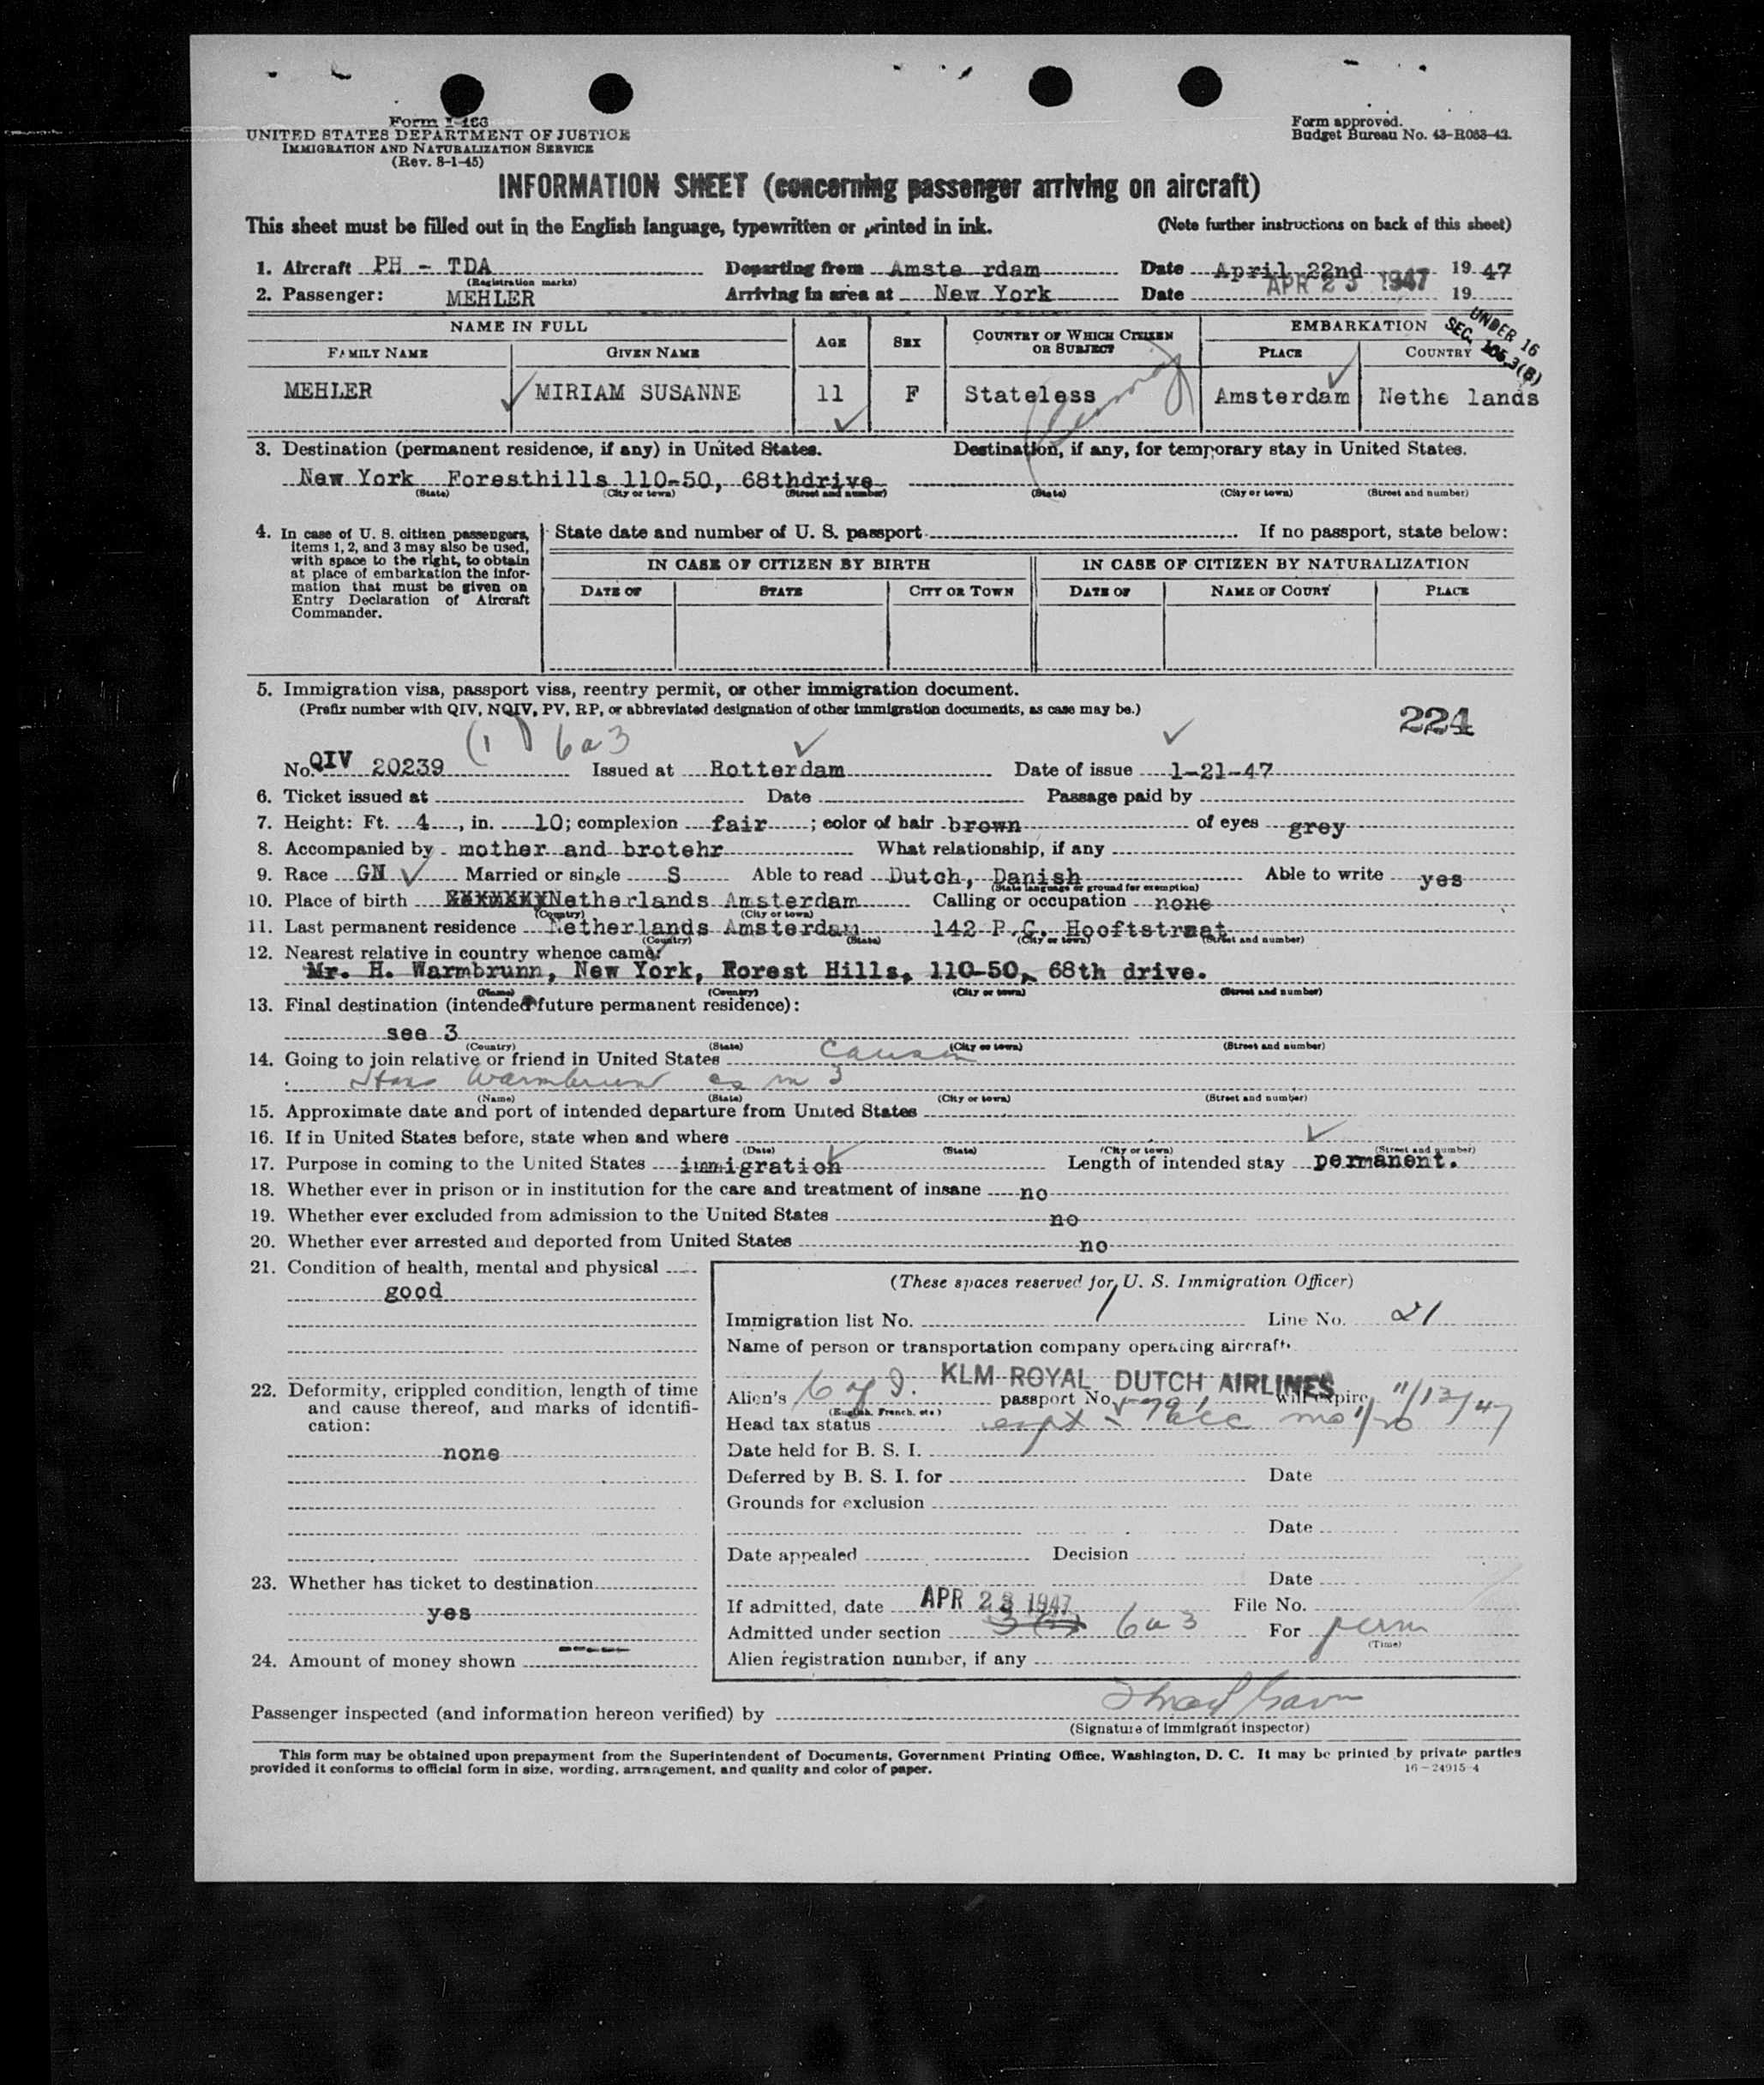 Form I-466
UNITED STATES DEPARTMENT OF JUSTICE
IMMIGRATION AND NATURALIZATION SERVICE
(Rev. 8-1-45)
Form approved.
Budget Bureau No. 43-R083-42.
INFORMATION SHEET (concerning passenger arriving on aircraft)
This sheet must be filled out in the English language, typewritten or printed in ink. (Note further instructions on back of this sheet)
1. Aircraft PH - TDA Departing from Amste rdam Date April 22nd 19 47
(Registration marks)
2. Passenger: MEHLER Arriving in area at New York Date APR 23 1947 19
NAME IN FULL AGE SEX COUNTRY OF WHICH CITIZEN OR SUBJECT EMBARKATION
UNDER 16
SEC. 105.3(B)
FAMILY NAME GIVEN NAME PLACE COUNTRY
MEHLER MIRIAM SUSANNE 11 F Stateless Amsterdam Nethe lands
3. Destination (permanent residence, if any) in United States. Destination, if any, for temporary stay in United States.
New York Foresthills 110-50, 68thdrive
(State) (City or town) (Street and number) (State) (City or town) (Street and number)
4. In case of U. S. citizen passengers, items 1, 2, and 3 may also be used, with space to the right, to obtain at place of embarkation the information that must be given on Entry Declaration of Aircraft Commander.
State date and number of U. S. passport If no passport, state below:
IN CASE OF CITIZEN BY BIRTH IN CASE OF CITIZEN BY NATURALIZATION
DATE OF STATE CITY OR TOWN DATE OF NAME OF COURT PLACE
5. Immigration visa, passport visa, reentry permit, or other immigration document.
(Prefix number with QIV, NQIV, PV, RP, or abbreviated designation of other immigration documents, as case may be.)
224
(1) 6a3
No. QIV 20239 Issued at Rotterdam Date of issue 1-21-47
6. Ticket issued at Date Passage paid by
7. Height: Ft. 4, in. 10; complexion fair; color of hair brown of eyes grey
8. Accompanied by mother and brotehr What relationship, if any
9. Race GN Married or single S Able to read Dutch, Danish Able to write yes
(State language or ground for exemption)
10. Place of birth Netherlands Amsterdam Calling or occupation none
(Country) (City or town)
11. Last permanent residence Netherlands Amsterdam 142 P.C. Hooftstraat
(Country) (State) (City or town) (Street and number)
12. Nearest relative in country whence came:
Mr. H. Warmbrunn, New York, Forest Hills, 110-50, 68th drive.
(Name) (Country) (City or town) (Street and number)
13. Final destination (intended future permanent residence):
see 3
(Country) (State) (City or town) (Street and number)
14. Going to join relative or friend in United States cousin
Hans Warmbrunn as in 3
(Name) (State) (City or town) (Street and number)
15. Approximate date and port of intended departure from United States
16. If in United States before, state when and where
(Date) (State) (City or town) (Street and number)
17. Purpose in coming to the United States immigration Length of intended stay permanent.
18. Whether ever in prison or in institution for the care and treatment of insane no
19. Whether ever excluded from admission to the United States no
20. Whether ever arrested and deported from United States no
21. Condition of health, mental and physical
good
22. Deformity, crippled condition, length of time and cause thereof, and marks of identification:
none
23. Whether has ticket to destination
yes
24. Amount of money shown
(These spaces reserved for U. S. Immigration Officer)
Immigration list No. 1 Line No. 21
Name of person or transportation company operating aircraft
KLM ROYAL DUTCH AIRLINES
Alien's C of I. passport No. will expire 11/13/47
(English, French, etc.)
Head tax status
Date held for B. S. I.
Deferred by B. S. I. for Date
Grounds for exclusion
Date
Date appealed Decision
Date
If admitted, date APR 23 1947 File No.
Admitted under section 6a3 For perm
(Time)
Alien registration number, if any
Passenger inspected (and information hereon verified) by
(Signature of immigrant inspector)
This form may be obtained upon prepayment from the Superintendent of Documents, Government Printing Office, Washington, D. C. It may be printed by private parties
provided it conforms to official form in size, wording, arrangement, and quality and color of paper. 16-24915-4